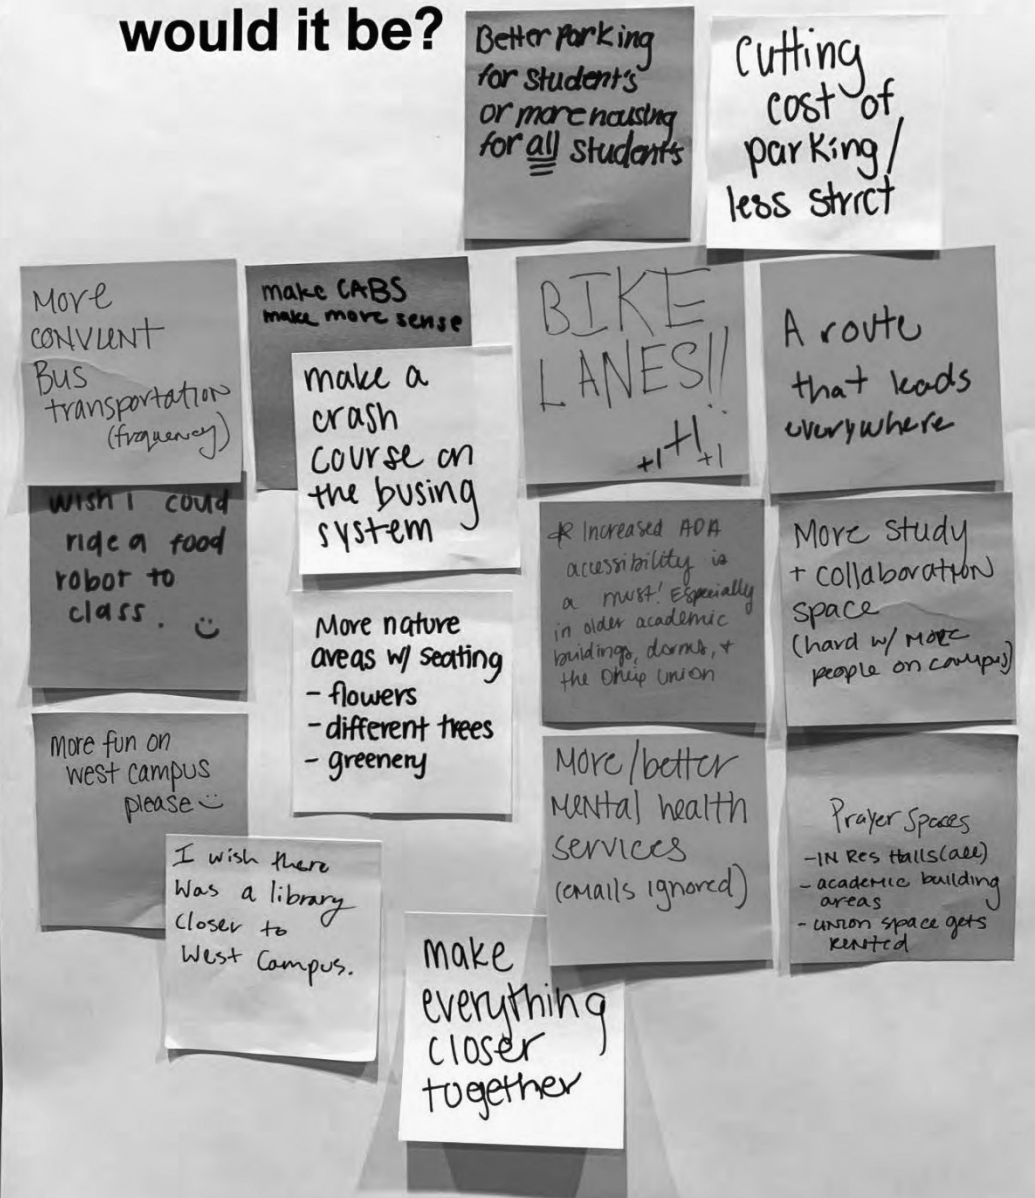 would it be?
Better Parking
for student's
or more housing
for all students
Cutting
cost of
parking/
less strict
More
CONVIENT
Bus
transportation
(frequency)
make CABS
make more sense
make a
crash
course on
the busing
system
BIKE
LANES!!
+1 +1 +1
A route
that leads
everywhere
wish I could
ride a food
robot to
class. :)
More nature
areas w/ seating
- flowers
- different trees
- greenery
* Increased ADA
accessibility is
a must! Especially
in older academic
buildings, dorms, +
the Ohio Union
More study
+ collaboration
space
(hard w/ more
people on campus)
More fun on
west campus
please :)
I wish there
was a library
closer to
West Campus.
More/better
mental health
services
(emails ignored)
Prayer Spaces
- IN Res Halls (all)
- academic building
areas
- union space gets
rented
make
everything
closer
together